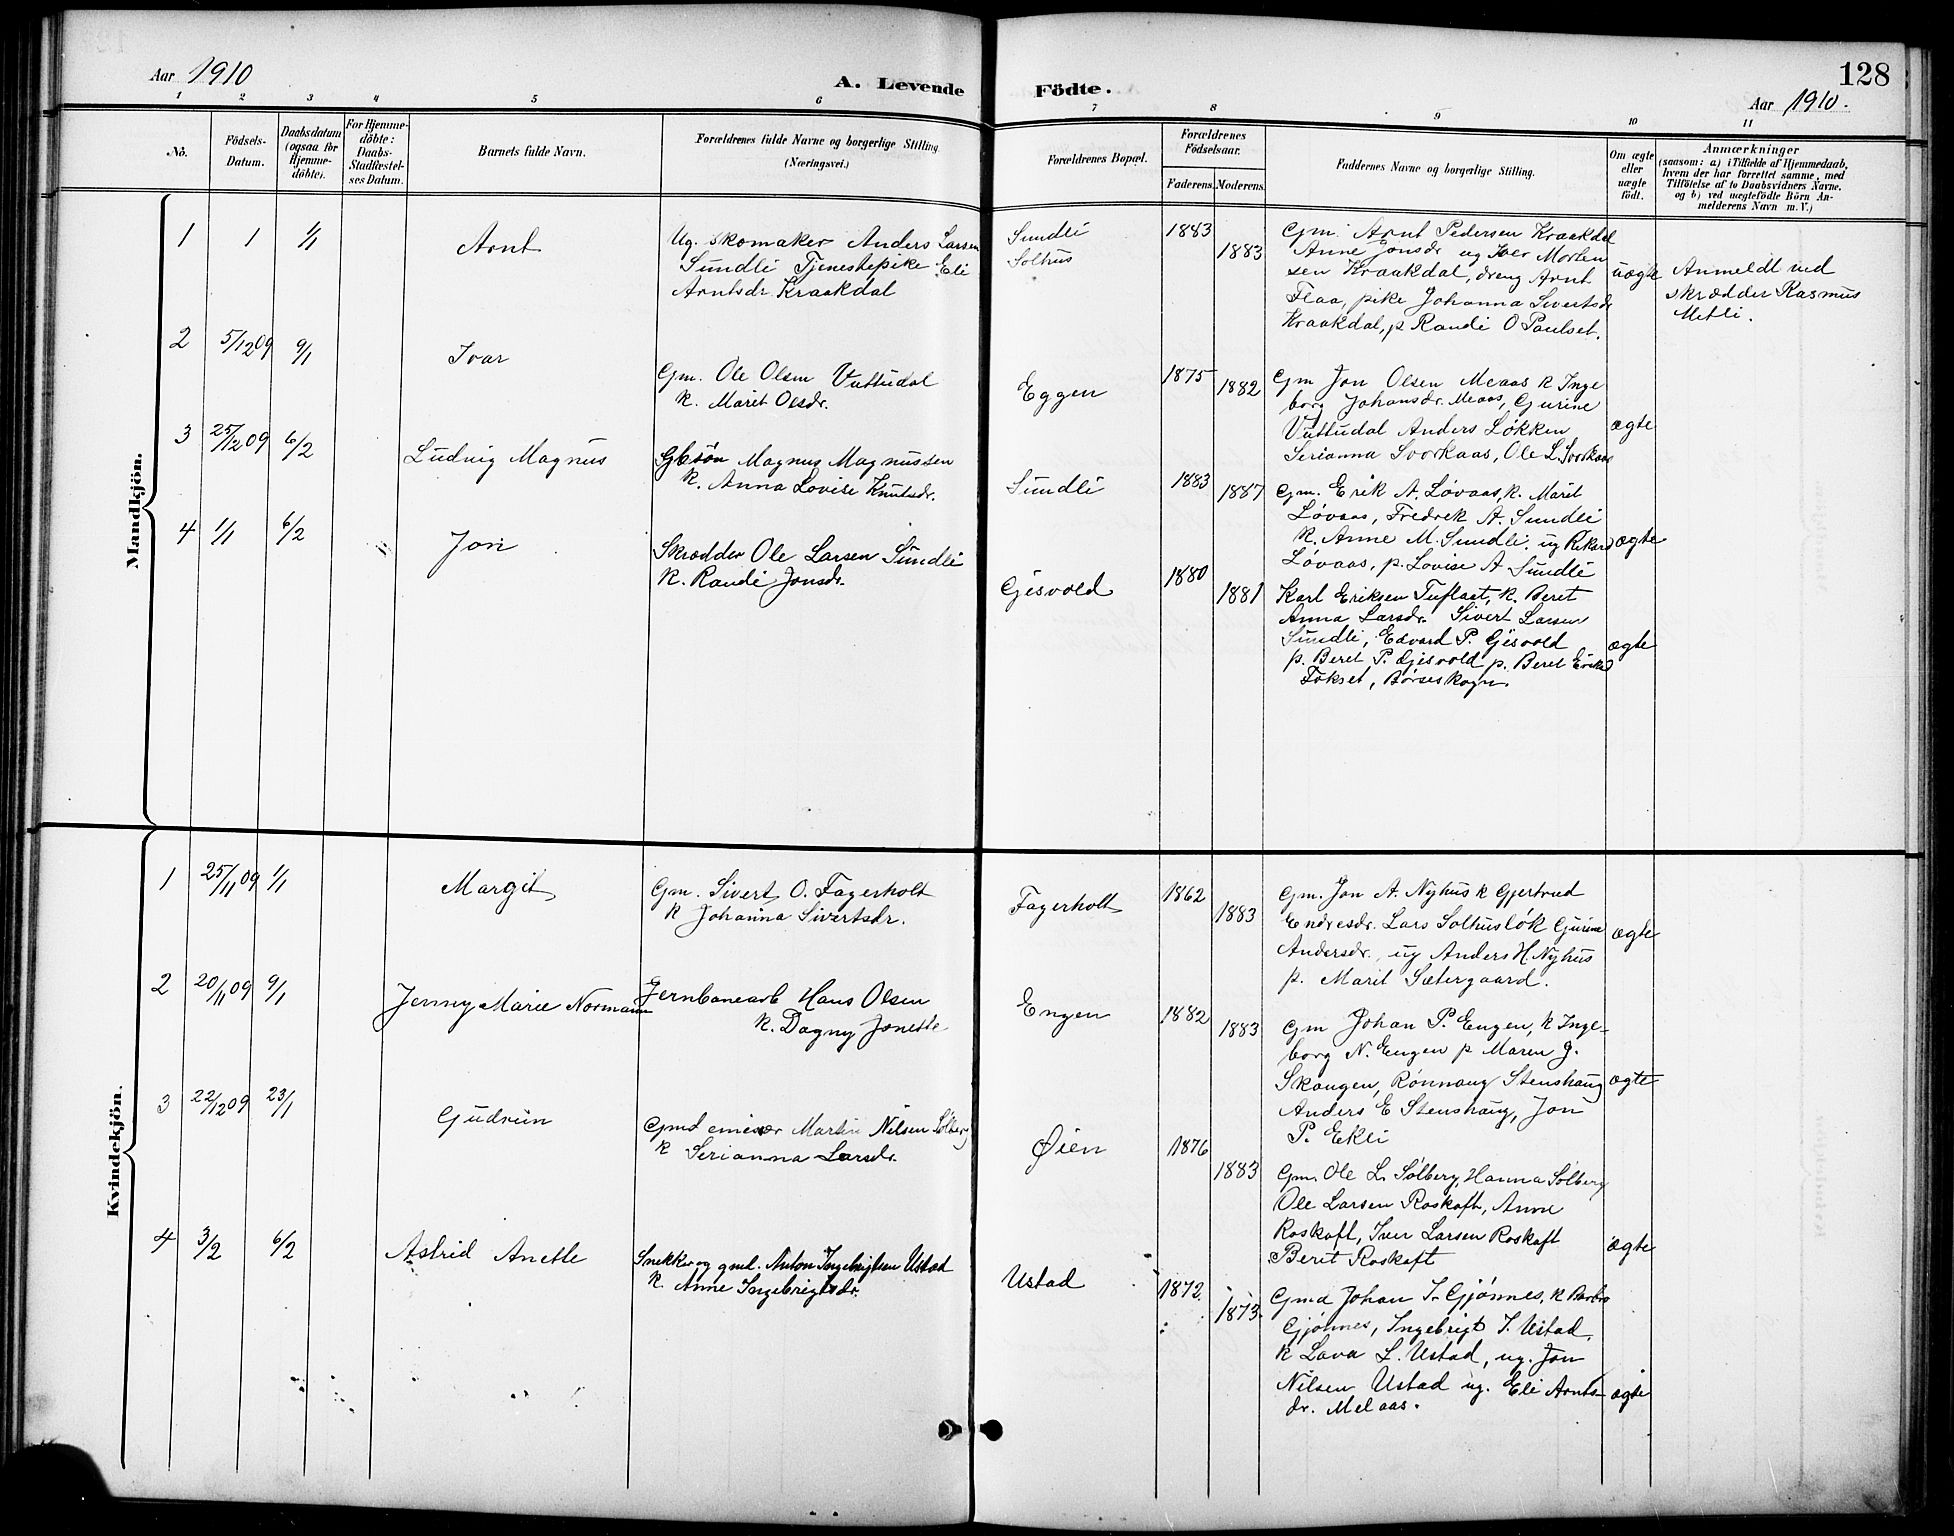 Aar 1910
A. Levende
Födte.
128
Aar 1910.
1 2 3 4 5 6
7 8 9 10 11
No.
Födsels-
Datum.
Daabsdatum
(ogsaa for
Hjemme-
döbte).
For Hjemme-
döbte:
Daabs-
Stadfæstel-
ses Datum.
Barnets fulde Navn.
Forældrenes fulde Navne og borgerlige Stilling.
(Næringsvei.)
Forældrenes Bopæl.
Forældrenes
Födselsaar.
Faderens. Moderens.
Faddernes Navne og borgerlige Stilling.
Om ægte
eller
uægte
födt.
Anmærkninger
(saasom: a) i Tilfælde af Hjemmedaab,
hvem der har forrettet samme, med
Tilföielse af to Daabsvidners Navne.
og b) ved uægtefödte Börn An-
melderens Navn m. V.)
Mandkjön.
1 1 1/1 Arnt
Ug. skomaker Anders Larsen
Sundli Tjenestepike Eli
Arntsdr. Kraakdal
Sundli
Solhus
1883
1883
Gm. Arnt Pedersen Kraakdal
Anne Jonsdr ug Iver Morten
sen Kraakdal, dreng Arnt
Flaa, pike Johanna Sivertsdr
Kraakdal, p Randi O Paulset.
uægte
Anmeldt ved
skrædder Rasmus
Metli.
2 5/12 09 9/1 Ivar
Gm. Ole Olsen Vuttudal
K. Marit Olsdr.
Eggen
1875
1882
Gm Jon Olsen Meaas K Inge
borg Johansdr. Meaas, Gurine
Vuttudal Anders Løkken
Serianna Svorkaas, Ole L. Svorkaas
ægte
3 25/12 09 6/2 Ludvig Magnus
Gbsøn Magnus Magnussen
K. Anna Lovise Knutsdr.
Sundli
1883
1887
Gm. Erik A. Løvaas, K. Marit
Løvaas, Fredrek A. Sundli
K. Anne M. Sundli, ug Rikard
Løvaas, p. Lovise A Sundli
ægte
4 1/1 6/2 Jon
Skrædder Ole Larsen Sundli
K. Randi Jonsdr.
Gjisvold
1880
1881
Karl Eriksen Tuflaet, K. Beret
Anna Larsdr. Sivert Larsen
Sundli, Edvard P. Gjisvold
p. Beret P. Gjisvold p. Beret Eriksd
Fokset, Børseskogn.
ægte
Kvindekjön.
1 25/11 09 1/1 Margit
Gm. Sivert O. Fagerholt
K Johanna Sivertsdr.
Fagerholt
1862
1883
Gm. Jon A. Nyhus K Gjertrud
Endresdr. Lars Solhusløk Gurine
Andersdr. ug Anders H. Nyhus
p. Marit Sætergaard.
ægte
2 20/11 09 9/1 Jenny Marie Normann
Jernbanearb Hans Olsen
K. Dagny Jonette
Engen
1882
1883
Gm Johan P. Engen, K Inge-
borg N. Engen p Maren J.
Skaugen, Rønnaug Stenshaug
Anders E Stenshaug, Jon
P. Ekli
ægte
3 22/12 09 23/1 Gudrun
Gmd Martin Nilsen Sølberg
K Serianna Larsdr.
Øien
1876
1883
Gm. Ole L. Sølberg, Hanna Sølberg
Ole Larsen Roskaft, Anne
Roskaft, Iver Larsen Roskaft
Berit Roskaft
ægte
4 3/2 6/2 Astrid Anette
Snekker og gmd. Anton Ingebrigtsen Ustad
K. Anne Ingebrigtsdr.
Ustad
1872.
1873.
Gmd Johan I. Gjønnes, K Barbro
Gjønnes, Ingebrigt I. Ustad
K Lava L. Ustad, ug. Jon
Nilsen Ustad ug. Eli Arnts-
dr. Melaas.
ægte